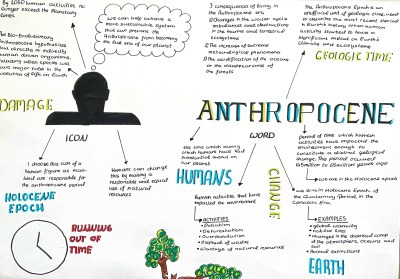 By 2050 human activities no
longer exceed the Planetary
limits.
The Bio-Evolutionary
Anthropocene hypothesises
not directly or indirectly
human driven organisms
including alien species will
have major roles in the
evolution of life on Earth
we can help achieve a
more sustainable system
that can prevent the
Anthropocene from becoming
the last era of our planet
Consequences of living in
the Anthropocene are:
1) Changes in the water cycle
imbalances and destructions
in the marine and terrestrial
ecosystems
2) The increase of extreme
meteorological phenomena
3) The acidification of the oceans
or the disappearance of
the forests
The Anthropocene Epoch is an
unofficial unit of geologic time, used
to describe the most recent period
in Earth's history when human
activity started to have a
significant impact on Earth's
climate and ecosystems
GEOLOGIC TIME
DAMAGE
ICON
ANTHROPOCENE
WORD
I choose this icon of a
human figure as man-
kind are responsible for
the anthropocene period
Humans can change
this by making a
responsible and equal
use of natural
resources
HOLOCENE
EPOCH
RUNNING
OUT OF
TIME
The time during which
humans have had
substantial impact on
our planet.
HUMANS
human activities that have
impacted the environment
ACTIVITIES
• Pollution
• Deforestation
• Overpopulation
• Disposal of waste
• Wastage of natural resources
CHANGE
period of time which human
activities have impacted the
environment enough to
constitute a distinct geological
change. This period occurred
we are in the Holocene epoch
we are in Holocene Epoch, of
the Quaternary Period, in the
Cenozoic Era.
EXAMPLES
• global economy
• habitat loss
• changes in the chemical comp
of the atmosphere, oceans and
soil
• Animal extinctions
EARTH